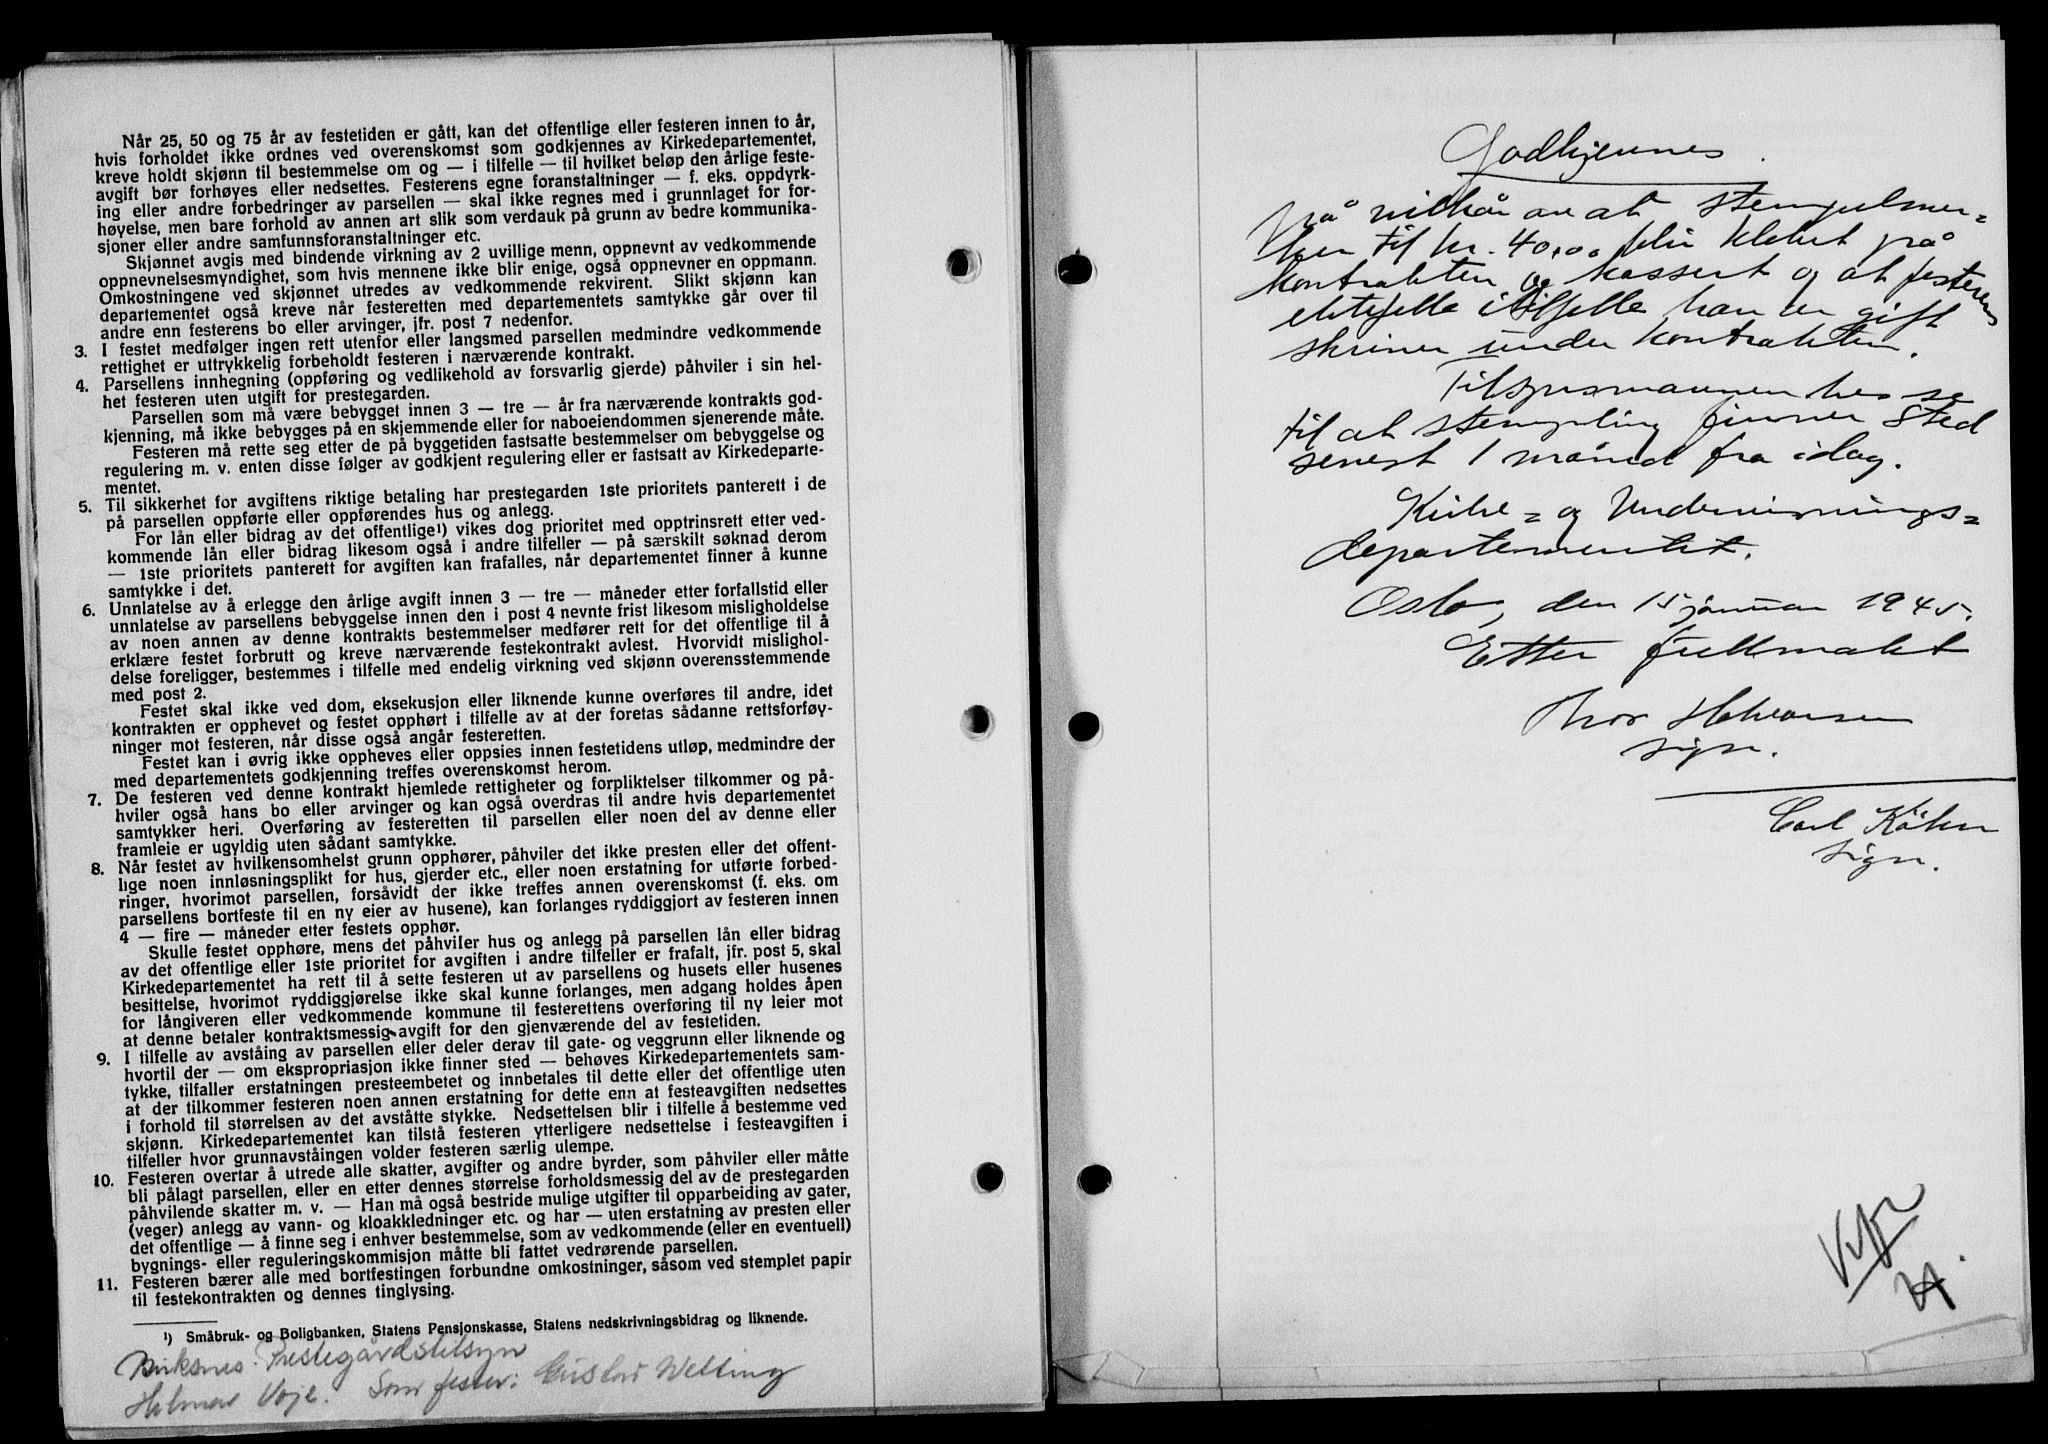 Når 25, 50 og 75 år av festetiden er gått, kan det offentlige eller festeren innen to år,
hvis forholdet ikke ordnes ved overenskomst som godkjennes av Kirkedepartementet,
kreve holdt skjønn til bestemmelse om og — i tilfelle — til hvilket beløp den årlige feste-
avgift bør forhøyes eller nedsettes. Festerens egne foranstaltninger — f. eks. oppdyrk-
ing eller andre forbedringer av parsellen — skal ikke regnes med i grunnlaget for for-
høyelse, men bare forhold av annen art slik som verdauk på grunn av bedre kommunika-
sjoner eller andre samfunnsforanstaltninger etc.
Skjønnet avgis med bindende virkning av 2 uvillige menn, oppnevnt av vedkommende
oppnevnelsesmyndighet, som hvis mennene ikke blir enige, også oppnevner en oppmann.
Omkostningene ved skjønnet utredes av vedkommende rekvirent. Slikt skjønn kan
departementet også kreve når festeretten med departementets samtykke går over til
andre enn festerens bo eller arvinger, jfr. post 7 nedenfor.
3. I festet medfølger ingen rett utenfor eller langsmed parsellen medmindre vedkommende
rettighet er uttrykkelig forbeholdt festeren i nærværende kontrakt.
4. Parsellens innhegning (oppføring og vedlikehold av forsvarlig gjerde) påhviler i sin hel-
het festeren uten utgift for prestegarden.
Parsellen som må være bebygget innen 3 — tre — år fra nærværende kontrakts god-
kjenning, må ikke bebygges på en skjemmende eller for naboeiendommen sjenerende måte.
Festeren må rette seg etter de på byggetiden fastsatte bestemmelser om bebyggelse og
regulering m. v. enten disse følger av godkjent regulering eller er fastsatt av Kirkedeparte-
mentet.
5. Til sikkerhet for avgiftens riktige betaling har prestegarden 1ste prioritets panterett i de
på parsellen oppførte eller oppførendes hus og anlegg.
For lån eller bidrag av det offentlige¹) vikes dog prioritet med opptrinsrett etter ved-
kommende lån eller bidrag likesom også i andre tilfeller — på særskilt søknad derom
— 1ste prioritets panterett for avgiften kan frafalles, når departementet finner å kunne
samtykke i det.
6. Unnlatelse av å erlegge den årlige avgift innen 3 — tre — måneder etter forfallstid eller
unnlatelse av parsellens bebyggelse innen den i post 4 nevnte frist likesom misligholdelse
av noen annen av denne kontrakts bestemmelser medfører rett for det offentlige til å
erklære festet forbrutt og kreve nærværende festekontrakt avlest. Hvorvidt mislighol-
delse foreligger, bestemmes i tilfelle med endelig virkning ved skjønn overensstemmende
med post 2.
Festet skal ikke ved dom, eksekusjon eller liknende kunne overføres til andre, idet
kontrakten er opphevet og festet opphørt i tilfelle av at der foretas sådanne rettsforføy-
ninger mot festeren, når disse også angår festeretten.
Festet kan i øvrig ikke oppheves eller oppsies innen festetidens utløp, medmindre der
med departementets godkjenning treffes overenskomst herom.
7. De festeren ved denne kontrakt hjemlede rettigheter og forpliktelser tilkommer og på-
hviler også hans bo eller arvinger og kan også overdras til andre hvis departementet
samtykker heri. Overføring av festeretten til parsellen eller noen del av denne eller
framleie er ugyldig uten sådant samtykke.
8. Når festet av hvilkensomhelst grunn opphører, påhviler det ikke presten eller det offent-
lige noen innløsningsplikt for hus, gjerder etc., eller noen erstatning for utførte forbed-
ringer, hvorimot parsellen, forsåvidt der ikke treffes annen overenskomst (f. eks. om
parsellens bortfeste til en ny eier av husene), kan forlanges ryddiggjort av festeren innen
4 — fire — måneder etter festets opphør.
Skulle festet opphøre, mens det påhviler hus og anlegg på parsellen lån eller bidrag
av det offentlige eller 1ste prioritet for avgiften i andre tilfeller er frafalt, jfr. post 5, skal
Kirkedepartementet ha rett til å sette festeren ut av parsellens og husets eller husenes
besittelse, hvorimot ryddiggjørelse ikke skal kunne forlanges, men adgang holdes åpen
for långiveren eller vedkommende kommune til festerettens overføring til ny leier mot
at denne betaler kontraktsmessig avgift for den gjenværende del av festetiden.
9. I tilfelle av avståing av parsellen eller deler derav til gate- og veggrunn eller liknende og
hvortil der — om ekspropriasjon ikke finner sted — behøves Kirkedepartementets sam-
tykke, tilfaller erstatningen presteembetet og innbetales til dette eller det offentlige uten
at der tilkommer festeren noen annen erstatning for dette enn at festeavgiften nedsettes
i forhold til størrelsen av det avståtte stykke. Nedsettelsen blir i tilfelle å bestemme ved
skjønn. Kirkedepartementet kan tilstå festeren ytterligere nedsettelse i festeavgiften i
tilfeller hvor grunnavståingen volder festeren særlig ulempe.
10. Festeren overtar å utrede alle skatter, avgifter og andre byrder, som påhviler eller måtte
bli pålagt parsellen, eller en etter dennes størrelse forholdsmessig del av de prestegarden
påhvilende skatter m. v. — Han må også bestride mulige utgifter til opparbeiding av gater,
(veger) anlegg av vann- og kloakkledninger etc. og har — uten erstatning av presten eller
det offentlige — å finne seg i enhver bestemmelse, som av vedkommende (eller en eventuell)
bygnings- eller reguleringskommisjon måtte bli fattet vedrørende parsellen.
11. Festeren bærer alle med bortfestingen forbundne omkostninger, såsom ved stemplet papir
til festekontrakten og dennes tinglysing.
¹) Småbruk- og Boligbanken, Statens Pensjonskasse, Statens nedskrivningsbidrag og liknende.
Birksnes Prestegårdstilsyn
Helmer Voje. Som fester: Gustav Welling
Godkjennes.
På vilkår av at stempelmer=
ker til kr. 40,00 blir klebet på
kontrakten og kassert og at festerens
ektefelle i tilfelle han er gift
skriver under kontrakten.
Tilsynsmannen bes se
til at stempling finner sted
senest 1 måned fra idag.
Kirke = og Undervisnings=
departementet.
Oslo, den 15 januar 1945.
Etter fullmakt
Thor Halvorsen
sign.
Carl Køhn
sign.